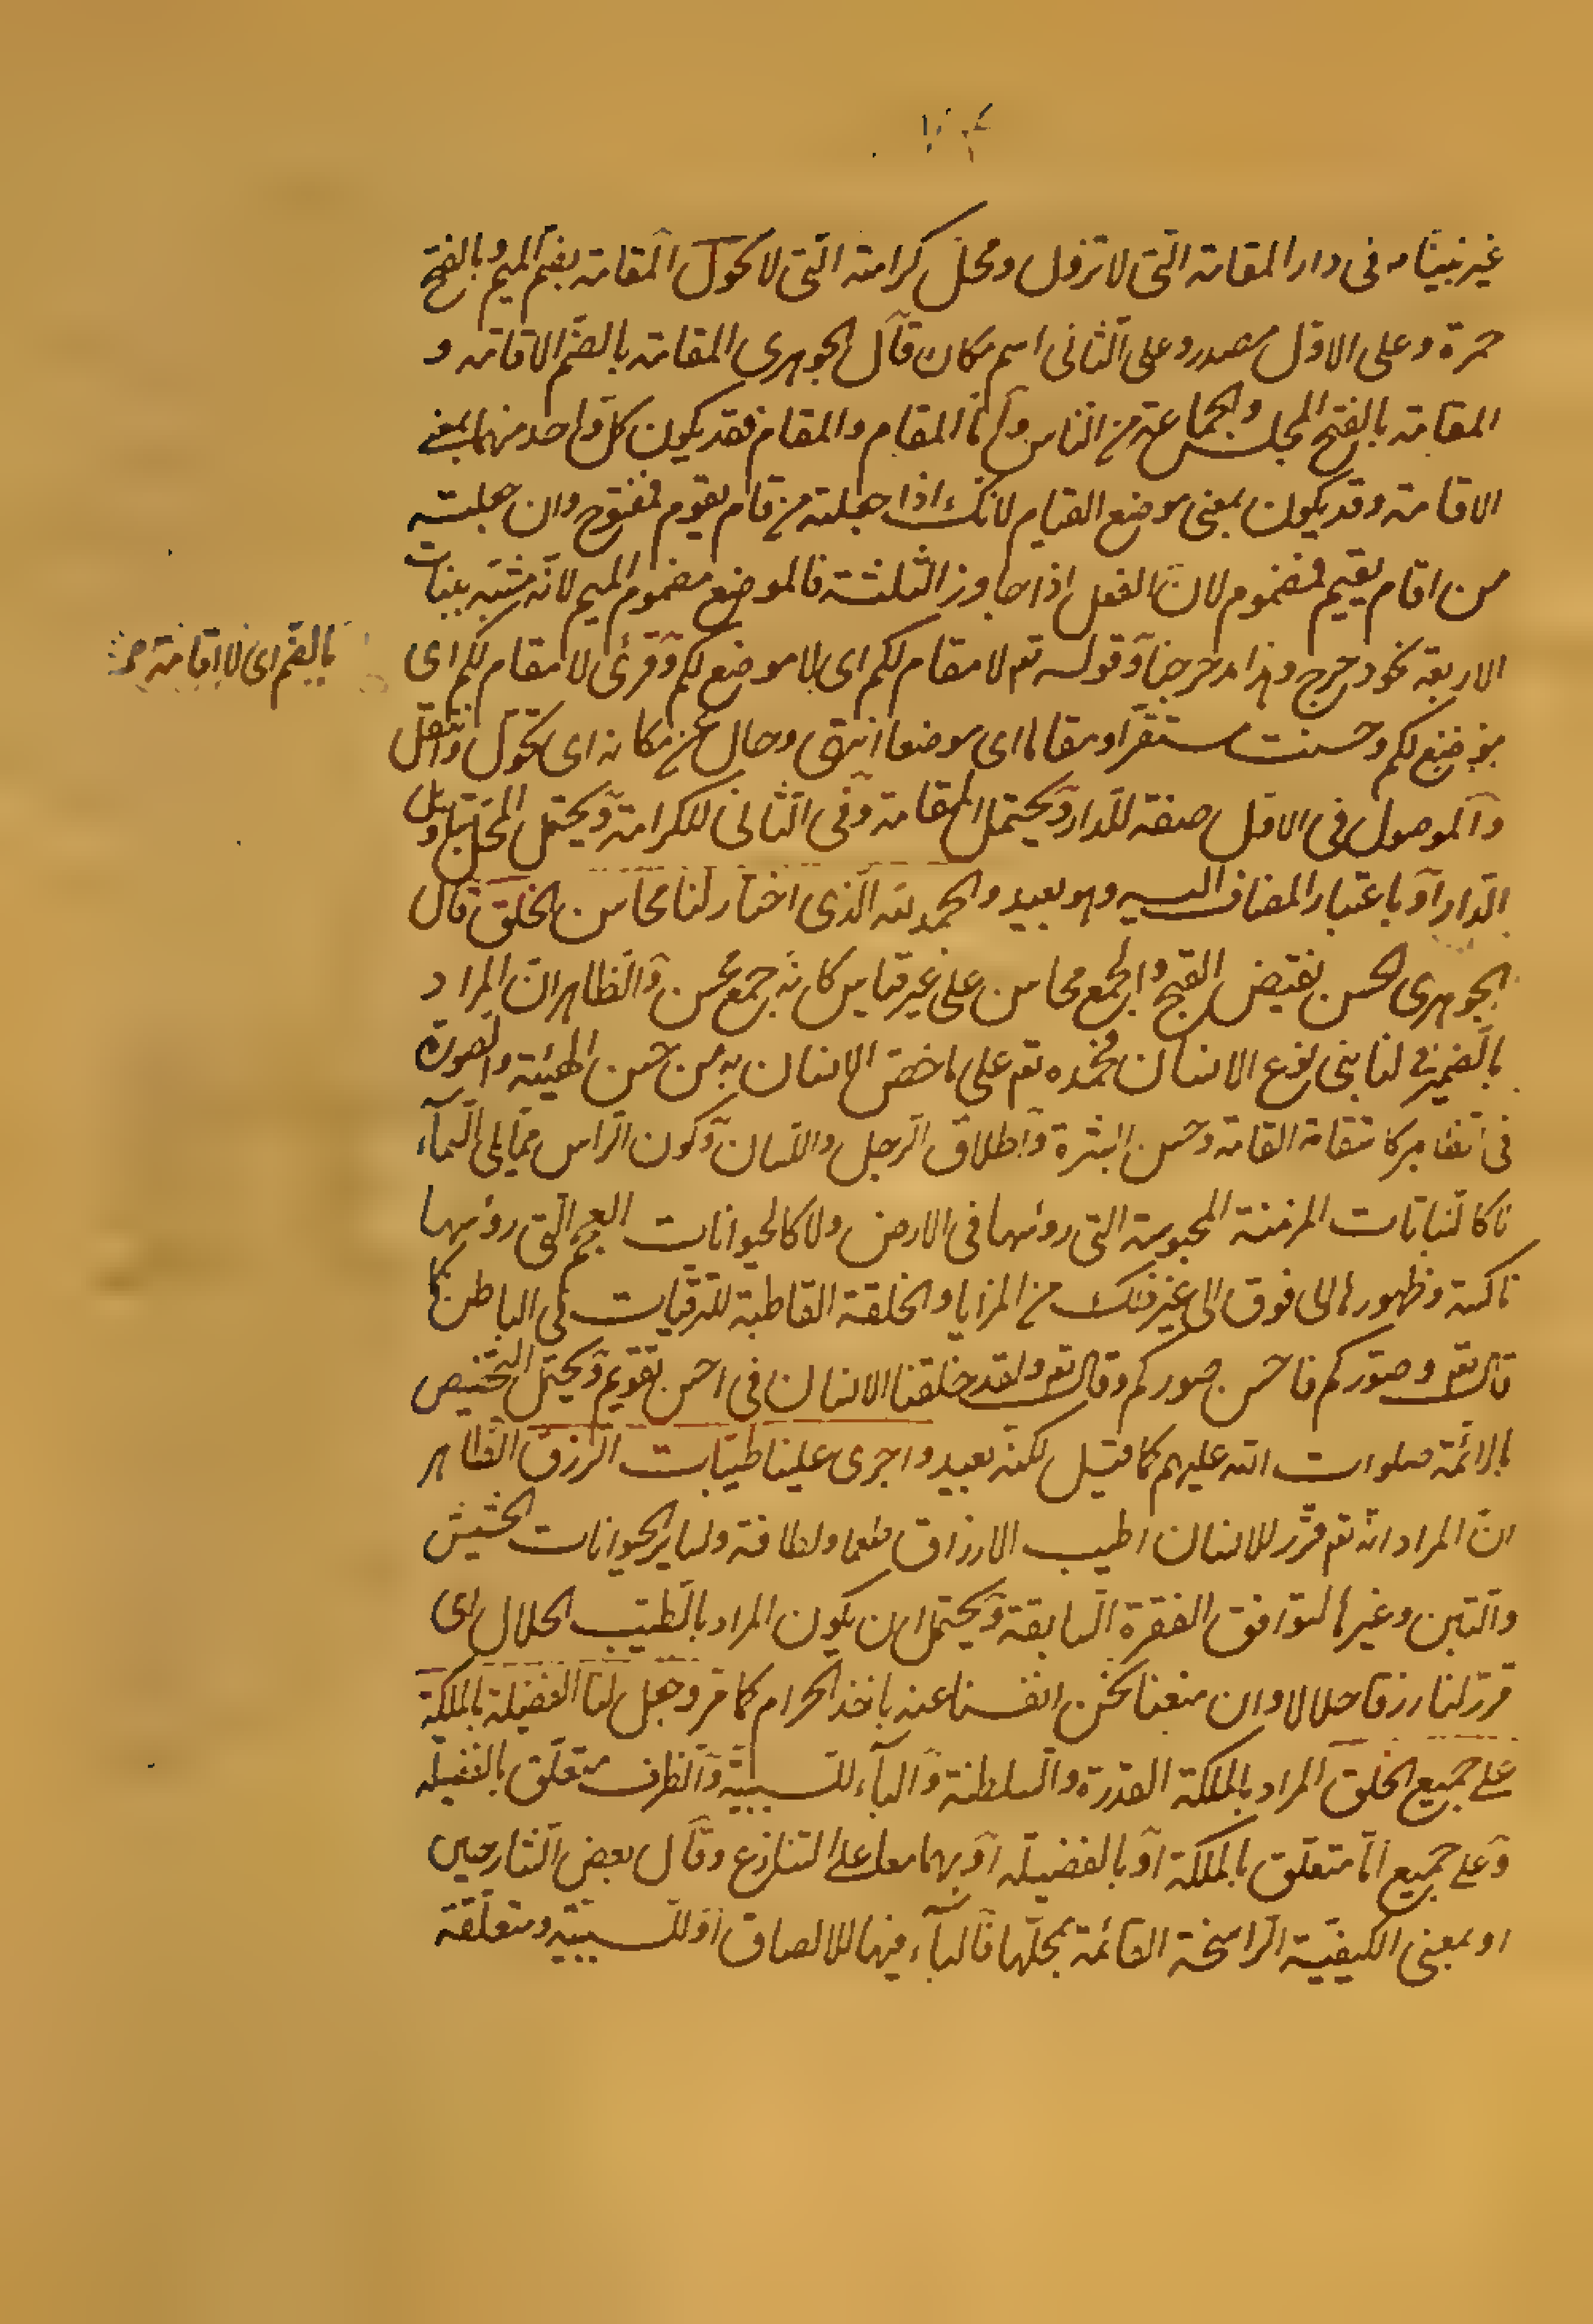 غير نبينا م في دار المقامة التي لا تزول ومحل كرامته التي لا تحول المقامة بضم الميم وبالفتح
مرة وعلى الاول مصدر وعلى الثاني اسم مكان قال الجوهري المقامة بالضم الاقامة و
المقامة بالفتح المجلس والجماعة من الناس واما المقام والمقام فقد يكون كل واحد منهما بمعنى
الاقامة وقد يكون بمعنى موضع القيام لانك اذا جعلته من قام يقوم فمفتوح وان جعلته
من اقام يقيم فمضموم لان الفعل اذا جاوز الثلثة فالموضع مضموم الميم لانه مشبه ببنات
الاربعة نحو دحرج وهذا مدحرجنا وقوله تع لا مقام لكم اى لا موضع لكم وقرئ لا مقام لكم اى
بالضم اى لا اقامة
موضع لكم وحسنت مستقرا ومقاما اى موضعا انتهى وحال عن مكانه اى تحول وانتقل
والموصول في الاول صفة للدار ويحتمل المقامة وفي الثاني للكرامة ويحتمل المحل بتاويل
الدار او باعتبار المضاف اليه وهو بعيد والحمد لله الذى اختار لنا محاسن الخلق قال
الجوهرى الحسن نقيض القبح والجمع محاسن على غير قياس كانه جمع محسن والظاهر ان المراد
بالضمير في لنا بنى نوع الانسان فحمده تع على ما خص الانسان به من حسن الهيئة والصورة
في الظاهر كاستقامة القامة وحسن البشرة واطلاق الرجل واللسان وكون الراس مما يلى السماء
لا كالنباتات المزمنة المحبوسة التى رؤسها فى الارض ولا كالحيوانات العجم التى رؤسها
ناكسة وظهورها الى فوق الى غير ذلك من المزايا والخلقة القاطبة للترقيات في الباطن كما
قال تع وصوركم فاحسن صوركم وقال تع ولقد خلقنا الانسان في احسن تقويم ويحتمل التخصيص
بالائمة صلوات الله عليهم كما قيل لكنه بعيد واجرى علينا طيبات الرزق الظاهر
ان المراد انه تع قرر للانسان اطيب الارزاق طعما ولطافة ولساير الحيوانات الحشيش
والتبن وغيرها لتوافق الفقرة السابقة ويحتمل ان يكون المراد بالطيب الحلال اى
قرر لنا رزقا حلالا وان منعنا نحن انفسنا عنه باخذ الحرام كما مر وجعل لنا الفضيلة بالملكة
على جميع الخلق المراد بالملكة القدرة والسلطنة والباء للسببية والظرف متعلق بالفضيلة
وعلى جميع اما متعلق بالملكة او بالفضيلة او بهما معا على التنازع وقال بعض الشارحين
او بمعنى الكيفية الراسخة القائمة بمحلها فالباء فيها للالصاق او للسببية ومتعلقة